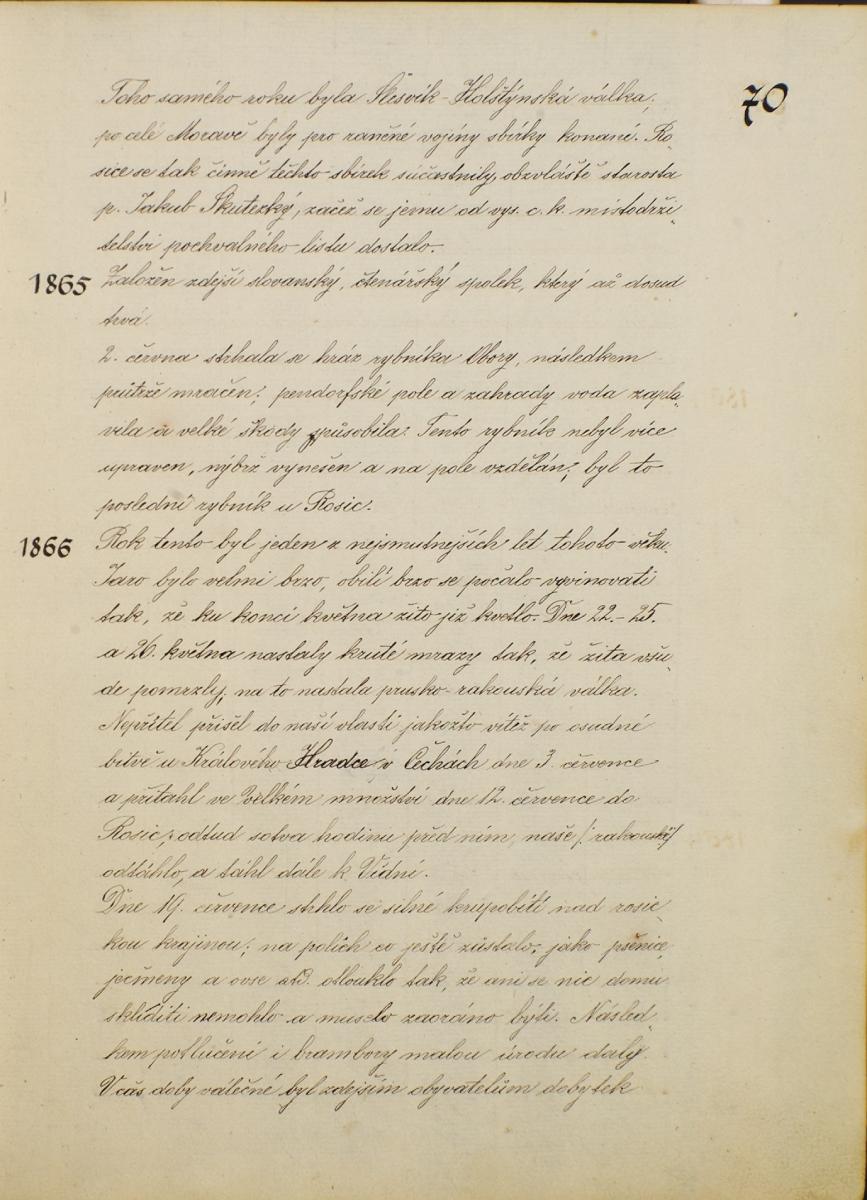 70
Toho samého roku byla Šlesvik-Holštýnská válka;
po celé Moravě byly pro raněné vojíny sbírky konané. Ro„
sice se tak činně těchto sbírek súčastnily, obzvláště starosta
p. Jakub Skutezký, začež se jemu od vys. c. k. místodrži„
telství pochvalného listu dostalo.
1865 Založen zdejší slovanský, čtenářský spolek, který až dosud
trvá.
2. června strhala se hráz rybníka Obory, následkem
průtrže mračen; pendorfské pole a zahrady voda zapla„
vila a velké škody způsobila. Tento rybník nebyl více
upraven, nýbrž vynešen a na pole vzdělán; byl to
poslední rybník u Rosic.
1866 Rok tento byl jeden z nejsmutnejších let tohoto věku.
Jaro bylo velmi brzo, obilí brzo se počalo vyvinovati
tak, že ku konci května žito již kvetlo. Dne 22.-25.
a 26. května nastaly kruté mrazy tak, že žita všu„
de pomrzly; na to nastala prusko-rakouská válka.
Nepřítel přišel do naší vlasti jakožto vítěz po osudné
bitvě u Králového Hradce v Čechách dne 3. července
a přitáhl ve velkém množství dne 12. července do
Rosic, odtud sotva hodinu před ním, naše /: rakouské:/
odtáhlo, a táhl dále k Vídni.
Dne 19. července strhlo se silné krupobití nad rosic„
kou krajinou; na polích co ještě zůstalo, jako pšenice,
ječmeny a ovse atd. otlouklo tak, že ani se nic domů
skliditi nemohlo a muselo zaoráno býti. Násled„
kem potlučení i brambory malou úrodu daly.
V čas doby válečné byl zdejším obyvatelům dobytek